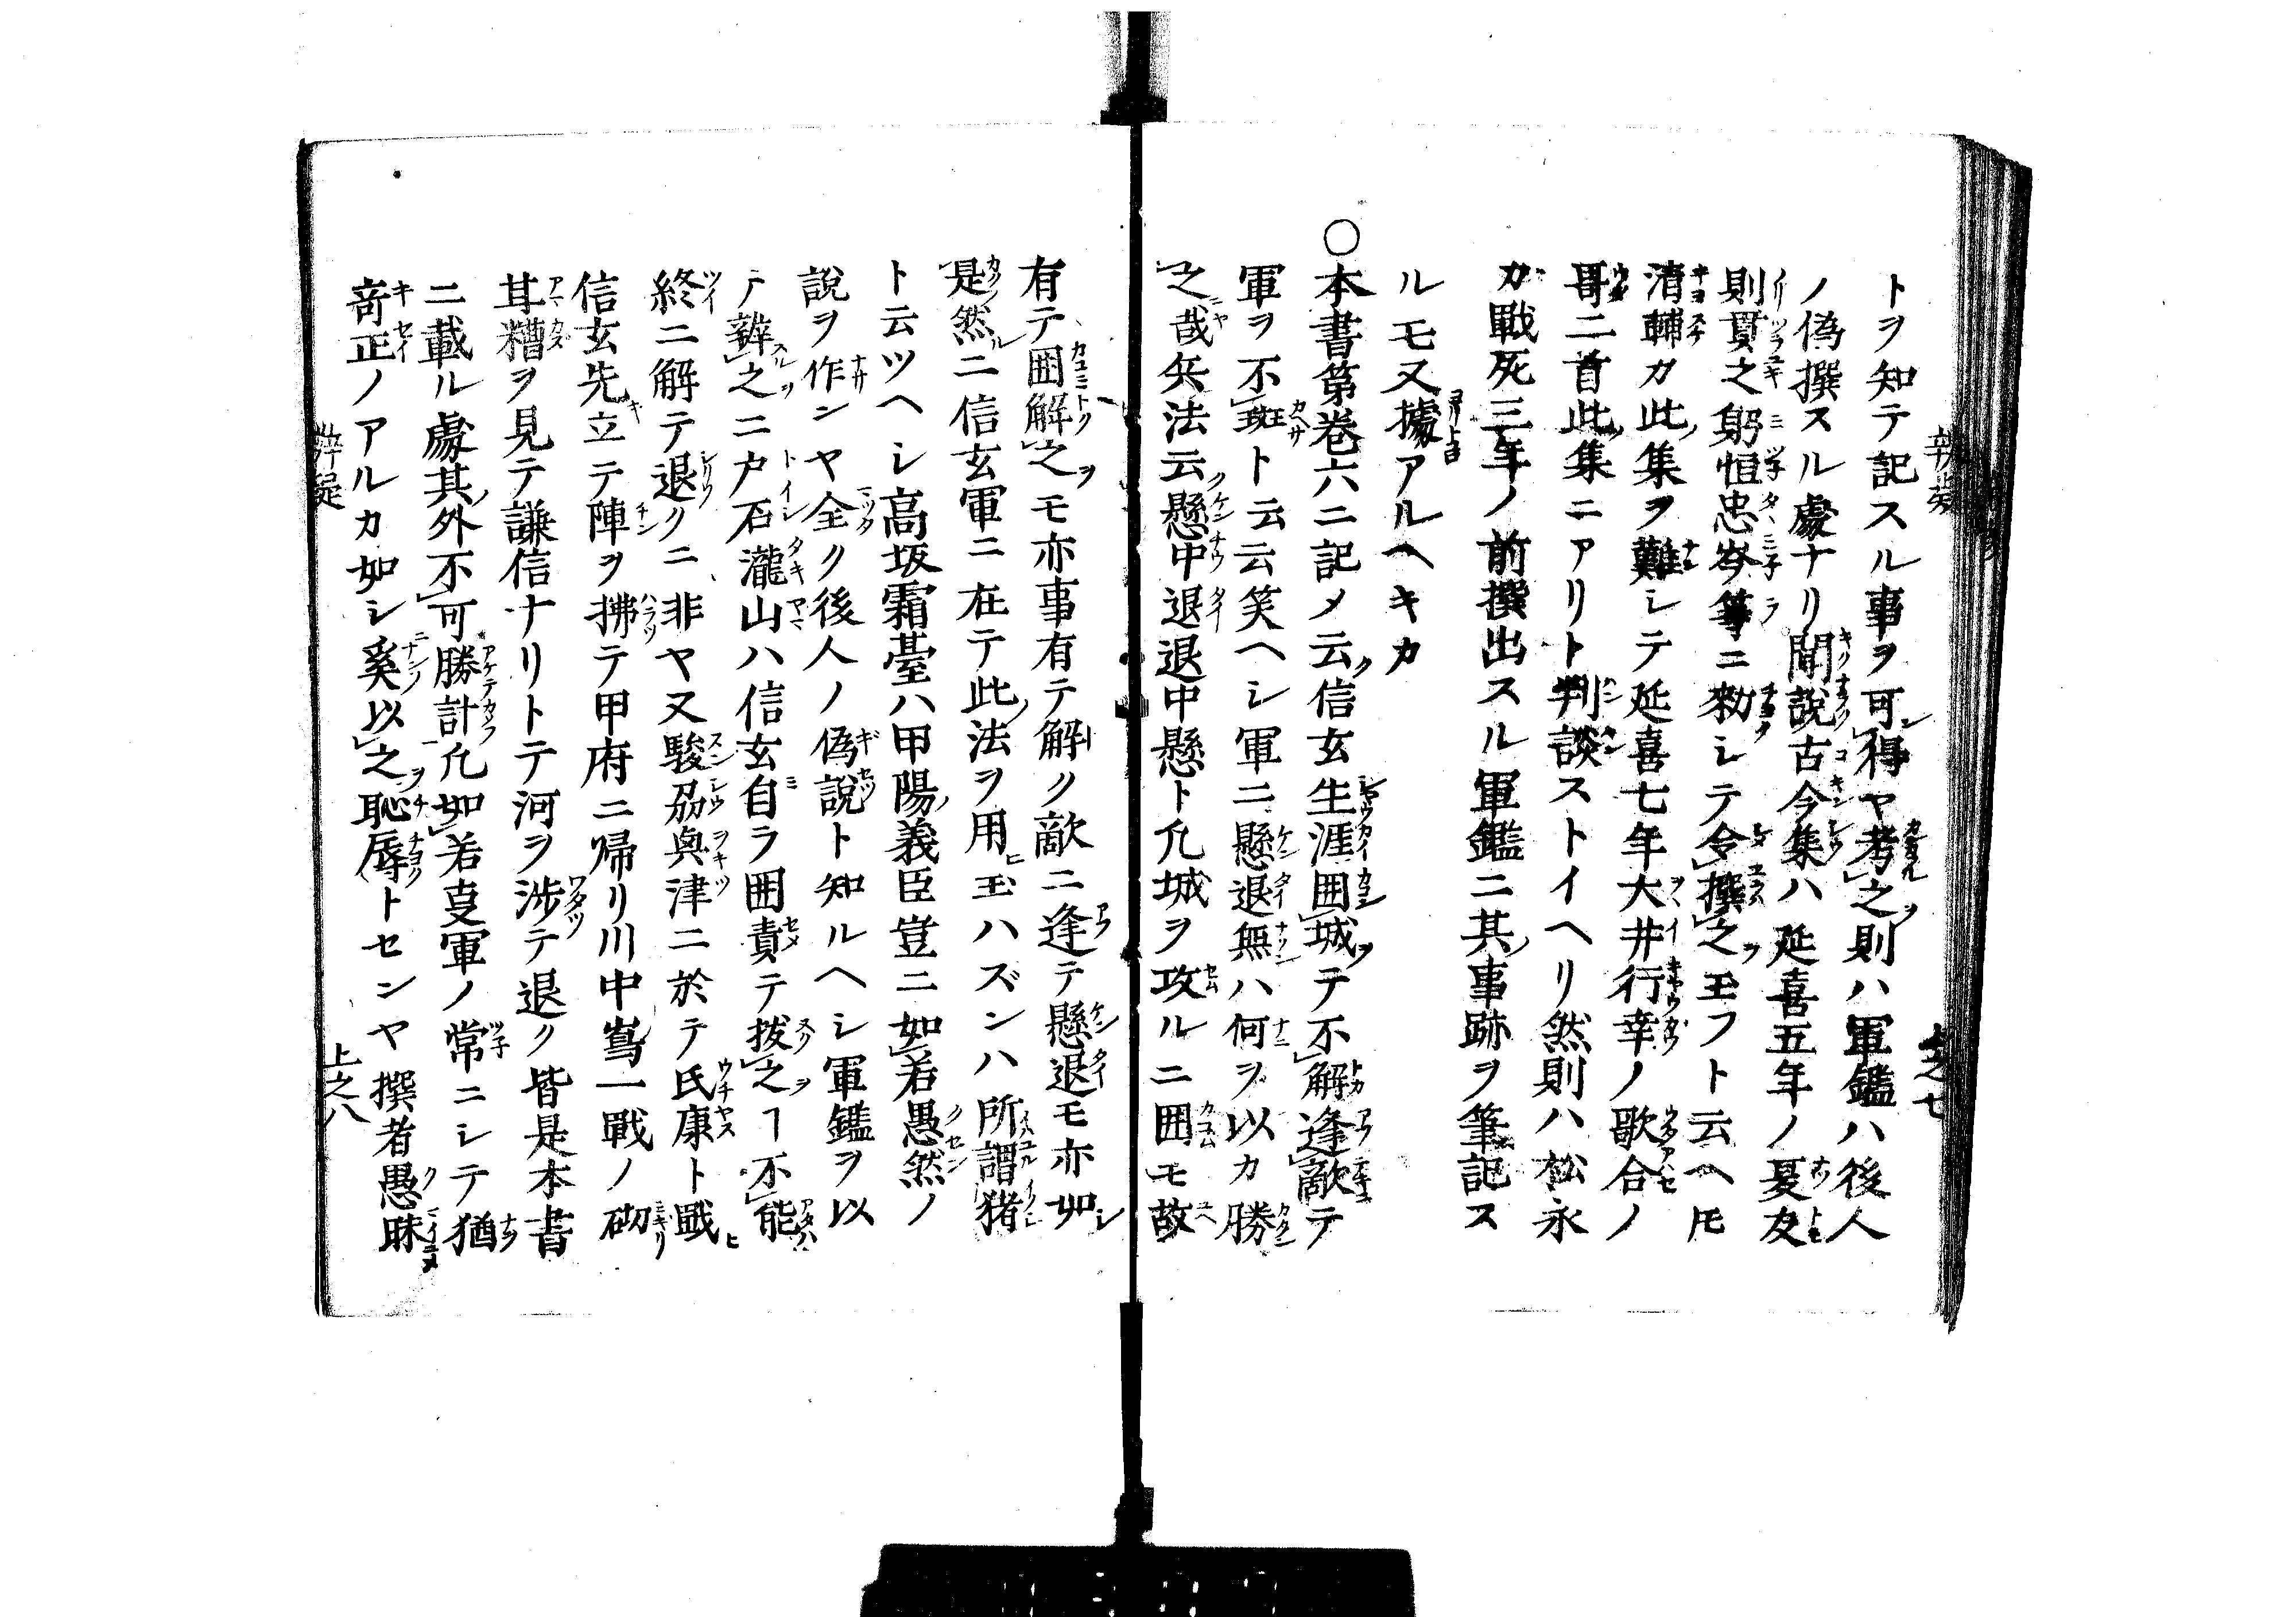 トヲ知テ記スル事ヲ可得ヤ考之則ハ軍鑑ハ後人
ノ偽撰スル處ナリ聞說古今集ハ延喜五年ノ夏友
則貫之躬恒忠岑等ニ勑シテ令撰之玉フト云ヘ𪜈
清輔カ此集ヲ難シテ延喜七年大井行幸ノ歌合ノ
哥二首此集ニアリト判談ストイヘリ然則ハ松永
カ戰死三年ノ前撰出スル軍鑑ニ其事跡ヲ筆記ス
ルモ又據アルヘキカ
○本書第卷六ニ記メ云信玄生涯囲城テ不解逢敵テ
軍ヲ不班ト云云笑ヘシ軍ニ懸退無ハ何ヲ以カ勝
之哉兵法云懸中退退中懸ト凢城ヲ攻ルニ囲モ故
有テ囲解之モ亦事有テ解ク敵ニ逢テ懸退モ亦如
是然ニ信玄軍ニ在テ此法ヲ用玉ハズンハ所謂猪
ト云ツヘシ高坂霜臺ハ甲陽義臣豈ニ如若愚然ノ
說ヲ作ンヤ全ク後人ノ偽說ト知ルヘシ軍鑑ヲ以
テ辨之ニ戸石瀧山ハ信玄自ラ囲責テ拔之ヿ不能
終ニ解テ退クニ非ヤ又駿刕與津ニ於テ氏康ト戰
信玄先立テ陣ヲ拂テ甲府ニ帰リ川中嶌一戰ノ砌
甘糟ヲ見テ謙信ナリトテ河ヲ涉テ退ク皆是本書
ニ載ル處其外不可勝計凢如若叓軍ノ常ニシテ猶
竒正ノアルカ如シ奚以之恥辱トセンヤ撰者愚昧
辨疑
上之八